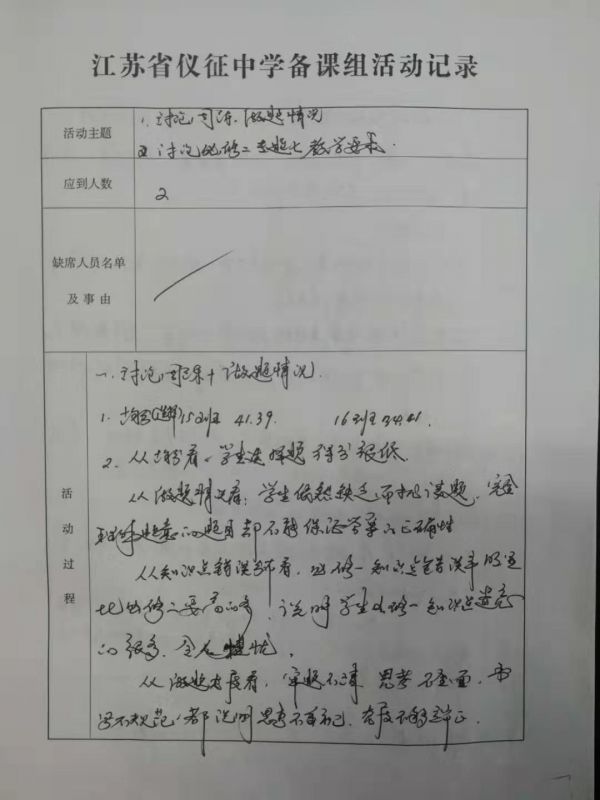 江苏省仪征中学备课组活动记录
活动主题
1. 讨论周练做题情况
2. 讨论必修二专题七教学要求.
应到人数
2
缺席人员名单
及事由
活动过程
一. 讨论周练十做题情况.
1. 均分(选择)15班 41.39. 16班 34.41
2. 从均分看, 学生选择题得分很低.
从做题情况看: 学生依然缺乏
题目都不能保证答案的正确性
从知识点错误分布看, 必修一知识点错误率明显
比必修二要高的多, 说明学生必修一知识点遗忘
的很多, 令人担忧.
从做题态度看, 审题不清 思考不全面, 书
写不规范, 都说明思考不 态度不够端正.